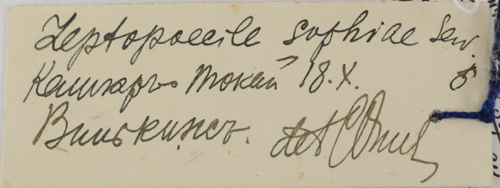 Leptopoecile sophiae Sev.
Кашгаръ Токай 18.X. ♂
Вилькинсъ. det